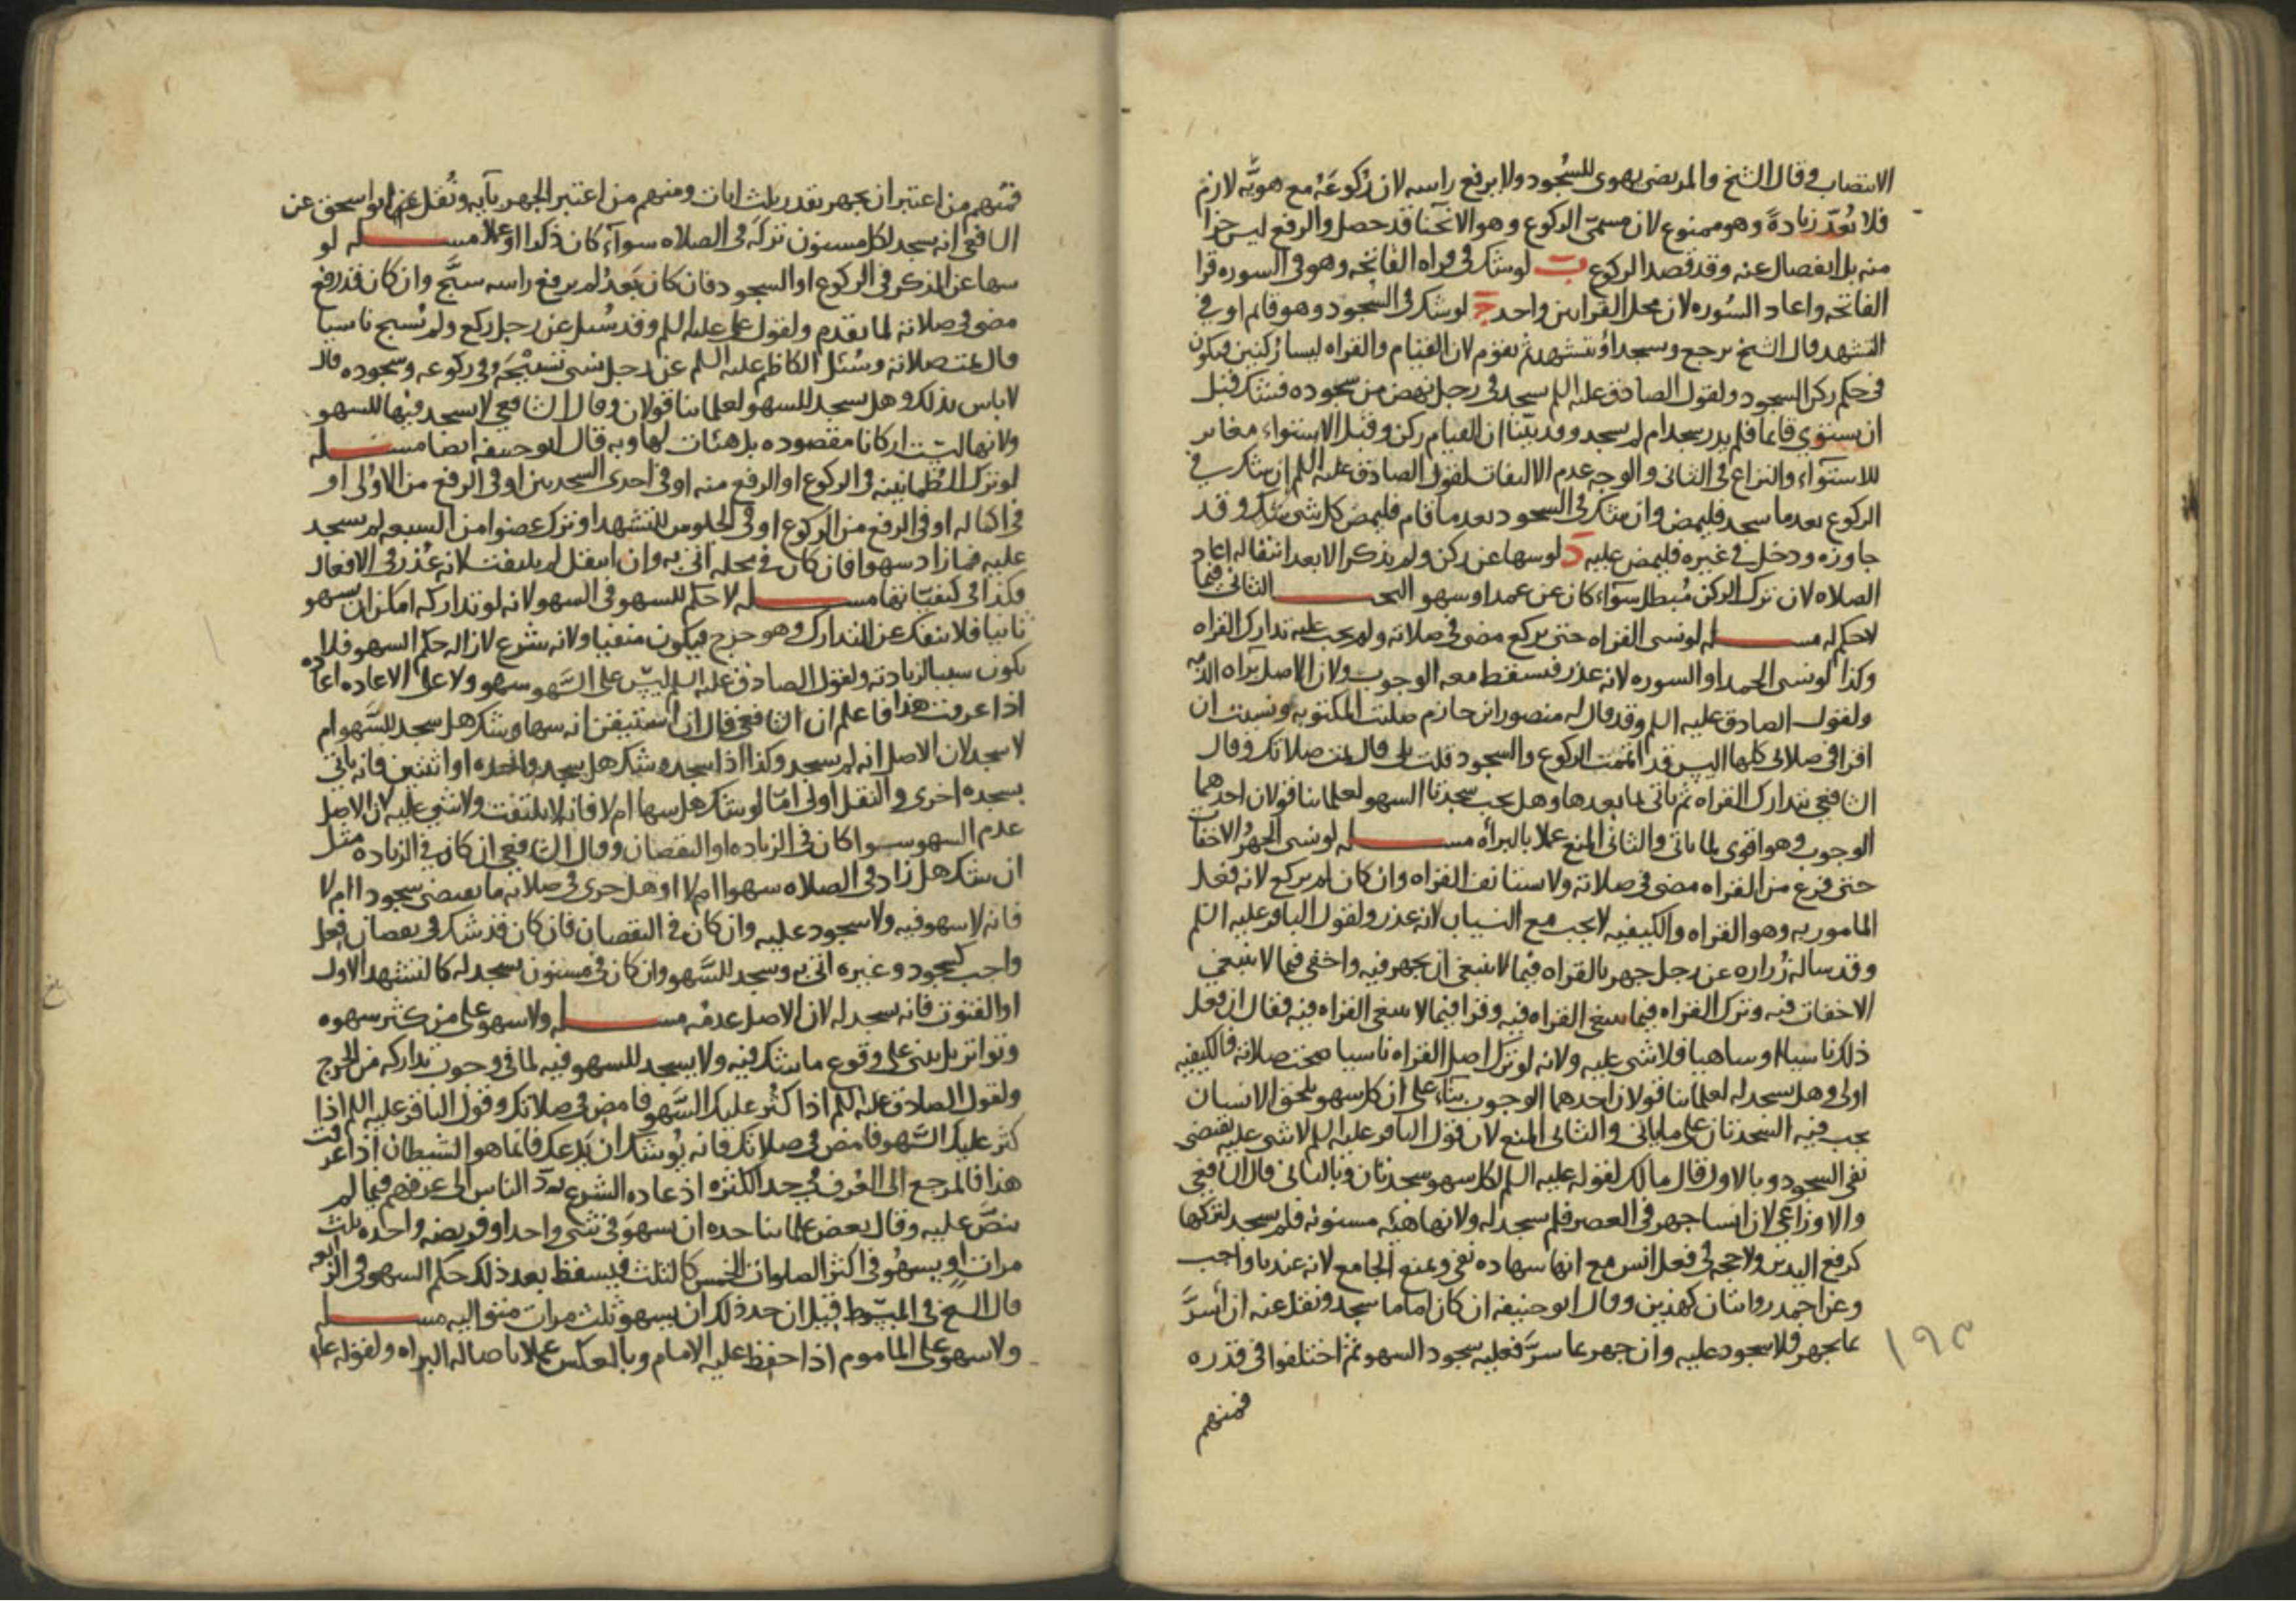 الانتصاب وقال الشيخ والمرتضى يهوى للسجود ولا يرفع راسه لان ركوعه مع هويه لازم
فلا تعد زيادة وهو ممنوع لان مسمى الركوع وهو الانحنا قد حصل والرفع ليس جزا
منه بل انفصال عنه وقد قصد الركوع ب لو شك فى قراه الفاتحه وهو فى السوره قرا
الفاتحه واعاد السوره لان محل القراتين واحد ج لو شك فى السجود وهو قايم او فى
التشهد قال الشيخ يرجع ويسجد او يتشهد ثم يقوم لان القيام والقراه ليسا ركنين فيكون
فى حكم ركن السجود ولقول الصادق عليه السلم يسجد فى رجل نهض من سجوده فشك قبل
ان يستوى قايما فلم يدر سجد ام لم يسجد وقد بينا ان القيام ركن وقبل الاستواء مغاير
للاستواء والنزاع فى الثانى والوجه عدم الالتفات لقول الصادق عليه السلم ان شك فى
الركوع بعد ما سجد فليمض وان شك فى السجود بعد ما قام فليمض كل شى شك وقد
جاوزه ودخل فى غيره فليمض عليه د لو سها عن ركن ولم يذكر الا بعد انتقاله اعاد
الصلاه لان ترك الركن مبطل سواء كان عن عمد او سهو البحث الثانى فيما
لا حكم له مسله لو نسى القراه حتى يركع مضى فى صلاته ولم يجب عليه تدارك القراه
وكذا لو نسى الحمد او السوره لانه عذر فيسقط معه الوجوب ولان الاصل براه الذمه
ولقول الصادق عليه السلم وقد قال له منصور بن حازم صليت المكتوبه ونسيت ان
اقرا فى صلاتى كلها اليس قد اتممت الركوع والسجود قلت بلى قال تمت صلاتك وقال
الشافعى يتدارك القراه ثم ياتى بما بعدها وهل يجب سجدتا السهو لعلماينا قولان احدهما
الوجوب وهو اقوى لما ياتى والثانى المنع عملا بالبرأه مسله لو نسى الجهر والاخفات
حتى فرغ من القراه مضى فى صلاته ولا يستانف القراه وان كان لم يركع لانه فعل
المامور به وهو القراه والكيفيه لا يجب مع النسيان لانه عذر ولقول الباقر عليه السلم
وقد ساله زراره عن رجل جهر بالقراه فيما لا ينبغى ان يجهر فيه واخفى فيما لا ينبغى
الاخفات فيه وترك القراه فيما ينبغى القراه فيه وقرا فيما لا ينبغى القراه فيه فقال ان فعل
ذلك ناسيا او ساهيا فلا شى عليه ولانه لو ترك اصل القراه ناسيا صحت صلاته فالكيفيه
اولى وهل يسجد له لعلماينا قولان احدهما الوجوب بناء على ان كل سهو يلحق الانسان
يجب فيه السجدتان على ما ياتى والثانى المنع لان قول الباقر عليه السلم لا شى عليه يقتضى
نفى السجود وبالاول قال مالك لقوله عليه السلم لكل سهو سجدتان وبالثانى قال الشافعى
والاوزاعى لان انسا جهر فى العصر فلم يسجد له ولانها هيئه مسنونه فلم يسجد لتركها
كرفع اليدين ولا حجه فى فعل انس مع انها شهاده نفى ويمنع الجامع لانه عندنا واجب
وعن احمد روايتان كهذين وقال ابو حنيفه ان كان اماما سجد ونقل عنه ان أسرَّ
بما يجهر فلا سجود عليه وان جهر بما يسرّ فعليه سجود السهو ثم اختلفوا فى قدره
١٩٣
فمنهم
فمنهم من اعتبر ان يجهر بقدر ثلث ايات ومنهم من اعتبر الجهر بآيه ونُقل عن ابو اسحق عن
الشافعى انه يسجد لكل مسنون تركه فى الصلاه سواء كان ذكرا او عملا مسله لو
سها عن الذكر فى الركوع او السجود فان كان بَعدُ لم يرفع راسه سبَّح وان كان قد رفع
مضى فى صلاته لما تقدم ولقول على عليه السلم وقد سُئل عن رجل ركع ولم يسبح ناسيا
قال تمت صلاته وسُئل الكاظم عليه السلم عن رجل نسى تسبيحه فى ركوعه وسجوده قال
لا باس بذلك وهل يسجد للسهو لعلماينا قولان وقال الشافعى لا يسجد فيها للسهو
ولانها ليست اركانا مقصوده بل هيئات لها وبه قال ابو حنيفه ايضا مسله
لو ترك الطمانينه فى الركوع او الرفع منه او فى احدى السجدتين او فى الرفع من الاولى او
فى اكماله او فى الرفع من الركوع او فى الجلوس للتشهد او ترك عضوا من السبعه لم يسجد
عليه فما زاد سهوا فان كان فى محله اتى به وان انتقل لم يلتفت لانه عُذر فى الافعال
فكذا فى كيفياتها مسله لا حكم للسهو فى السهو لانه لو تداركه امكن ان يسهو
ثانيا فلا ينفك عن التدارك وهو حرج فيكون منفيا ولانه شرع لازاله حكم السهو فلا
يكون سببا لزيادته ولقول الصادق عليه السلم ليس على السَّهو سهو ولا على الاعاده اعاده
اذا عرفت هذا فاعلم ان الشافعى قال ان استيقن انه سها وشك هل سجد للسَّهو ام
لا سجد لان الاصل انه لم يسجد وكذا اذا سجد وشك هل سجد واحده او اثنتين فانه ياتى
بسجده اخرى والنقل اولى امّا لو شك هل سها ام لا فانه لا يلتفت ولا شى عليه لان الاصل
عدم السهو سوا كان فى الزياده او النقصان وقال الشافعى ان كان فى الزياده مثل
ان شك هل زاد فى الصلاه سهوا ام لا او هل جرى فى صلاته ما يقتضى سجودا ام لا
فانه لا سهو فيه ولا سجود عليه وان كان فى النقصان فان كان قد شك فى نقصان فعل
واجب كسجود وغيره اتى به وسجد للسَّهو وان كان فى مسنون يسجد له كالتشهد الاول
او القنوت فانه يسجد له لان الاصل عدمه مسله ولا سهو على من كثر سهوه
وتواتر بل يبنى على وقوع ما شك فيه ولا يسجد للسهو فيه لما فى وجوب تداركه من الحرج
ولقول الصادق عليه السلم اذا كثُر عليك السَّهو فامض فى صلاتك وقول الباقر عليه السلم اذا
كثر عليك السَّهو فامض فى صلاتك فانه يُوشك ان يدعك فانما هو الشيطان اذا عرفت
هذا فالمرجع الى العُرف فى حد الكثره اذ عاده الشرع يردّ الناس الى عرفهم فيما لم
ينصَّ عليه وقال بعض علماينا حده ان يسهوَ فى شى واحد او فريضه واحده ثلث
مرات او يسهُو فى اكثر الصلوات الخمس كالثلث فيسقط بعد ذلك حكم السهو فى الرابعه
قال الشيخ فى المبسوط قيل ان حد ذلك ان يسهو ثلث مرات متواليه مسله
ولا سهو على الماموم اذا حفظ عليه الامام وبالعكس عملا باصاله البراه ولقوله عليه